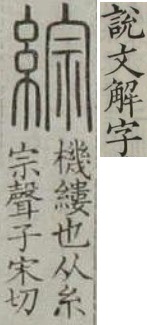 說文解字
綜
機縷也从糸
宗聲子宋切